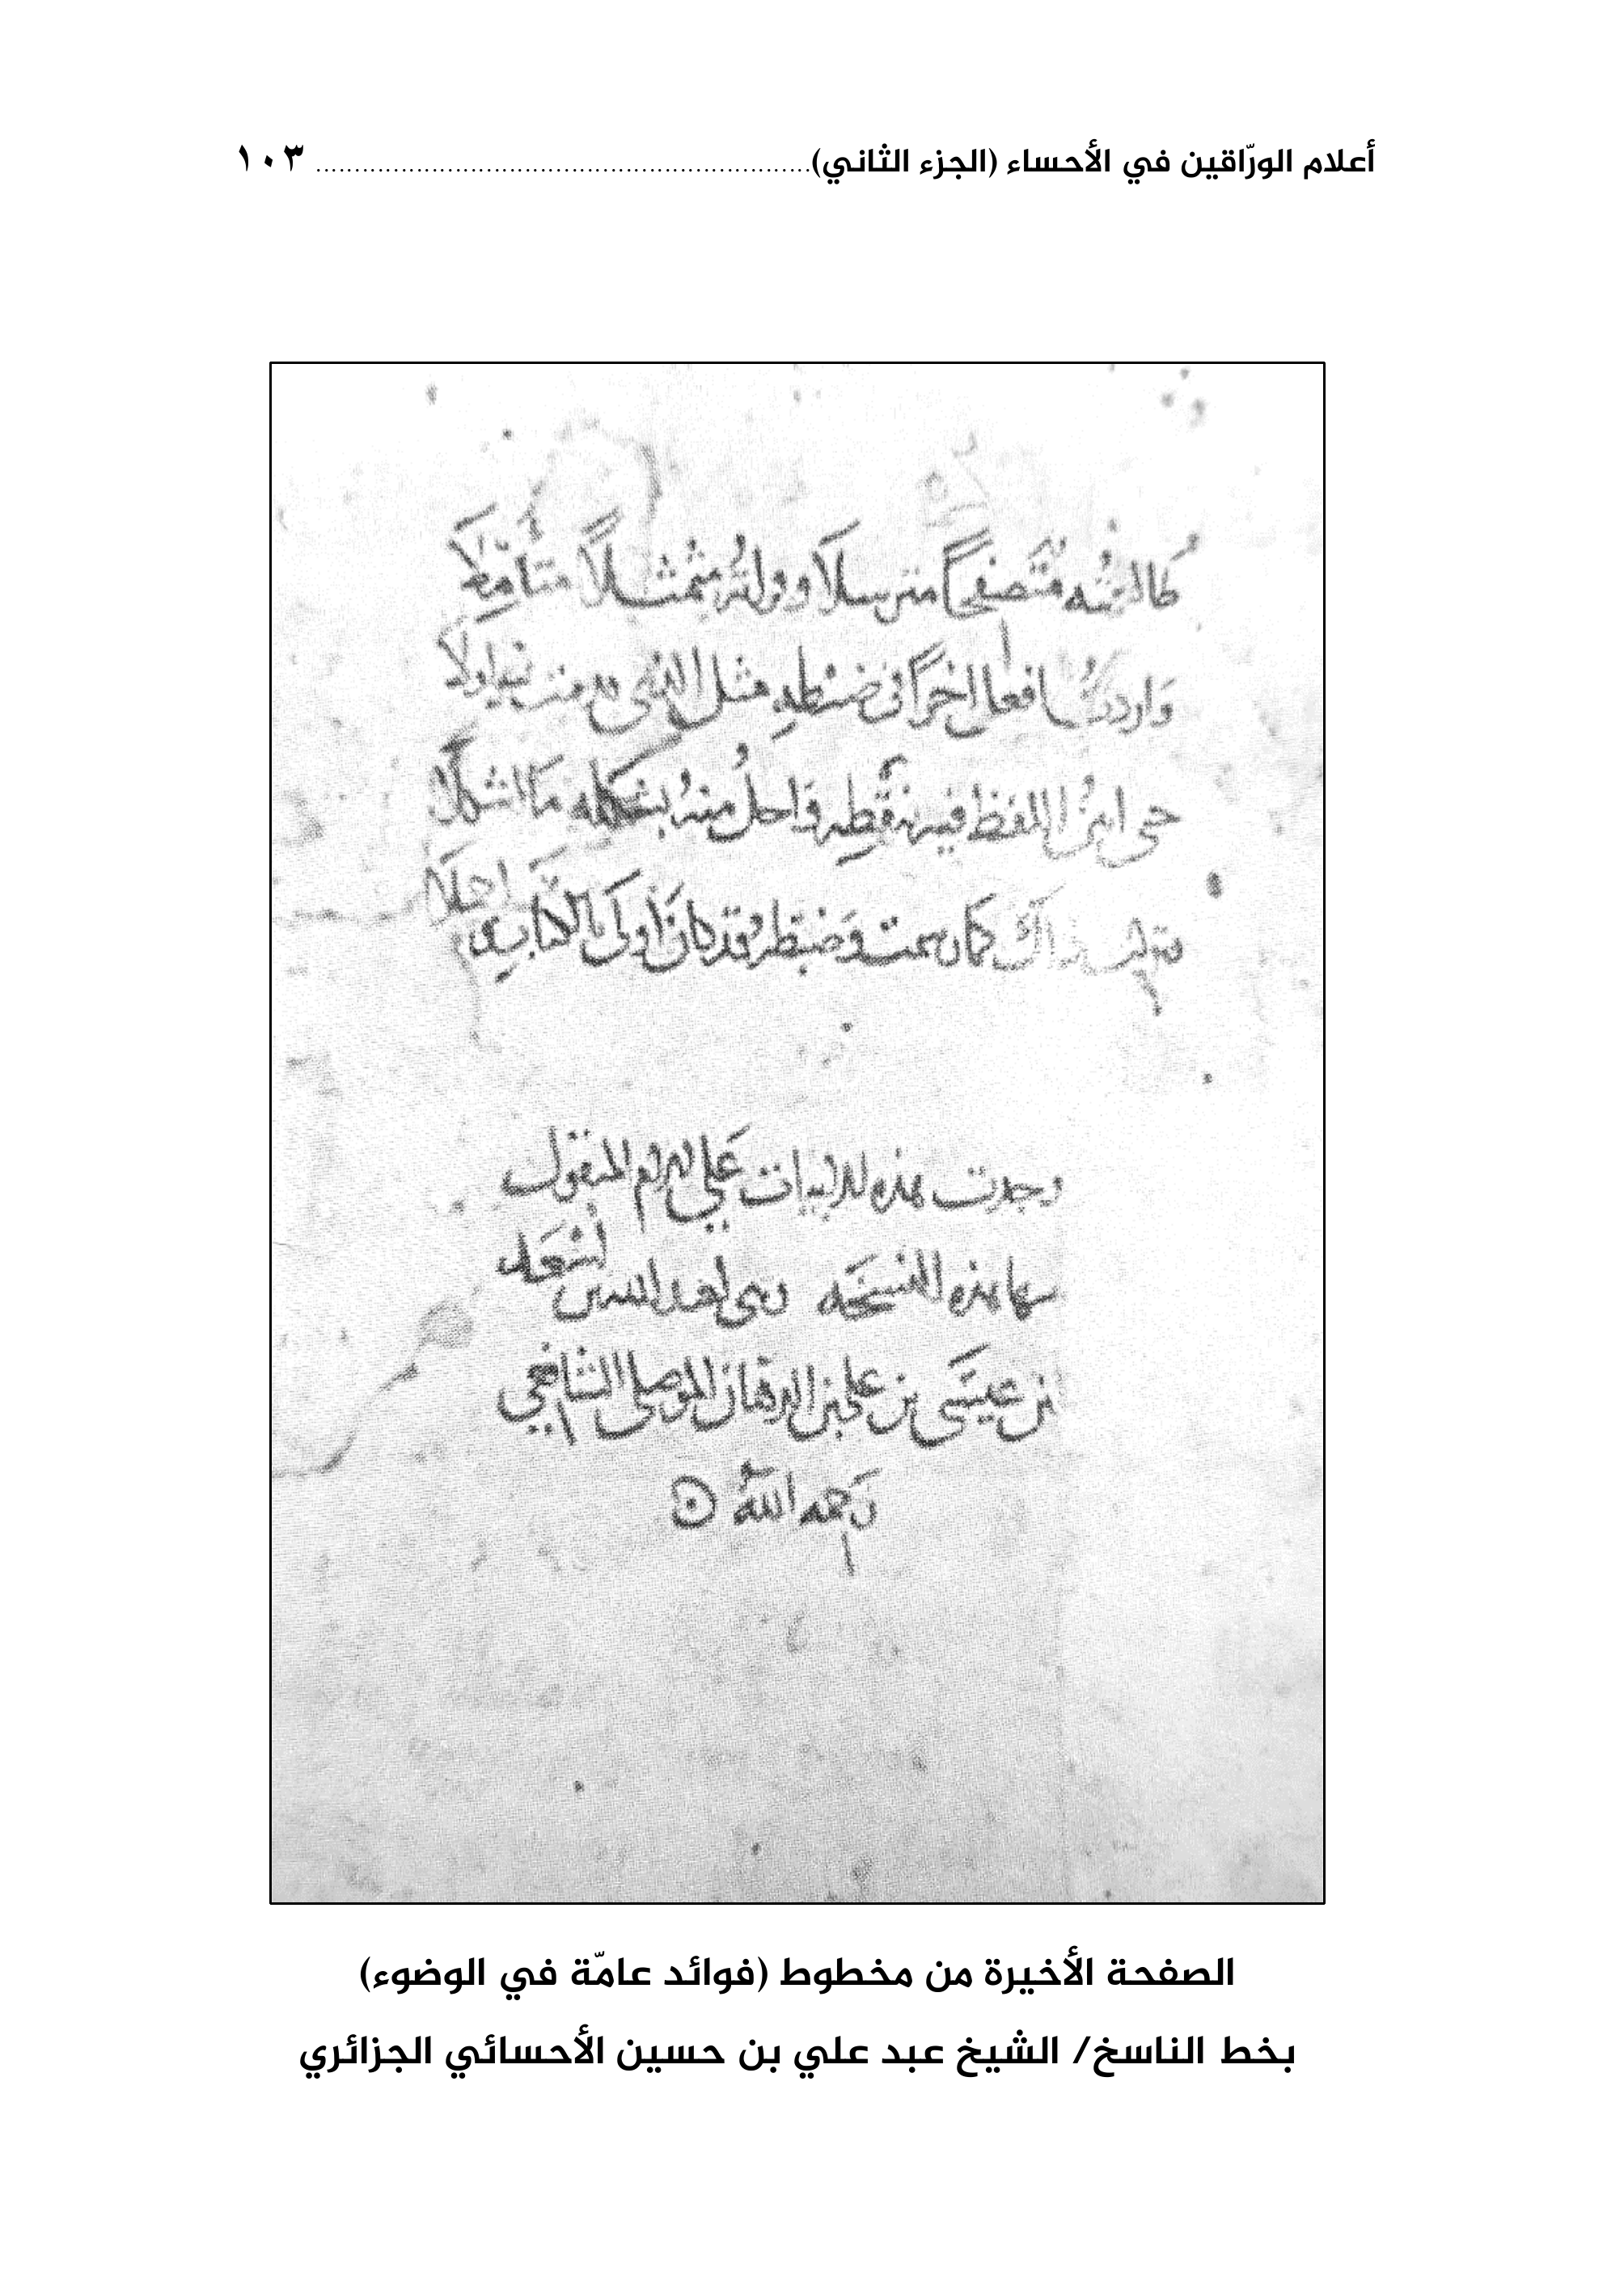 أعلام الورّاقين في الأحساء (الجزء الثاني) ........ ١٠٣
طالعته متصفحاً مترسلاً وقرأته متمثلاً متأملاً
وأردت افعل اخراً في ضبطه مثل الذي اولا
حتى ابين اللفظ فيه بنقطه واحل منه بشكله ما اشكلا
كمان سمت وضبطه وقد كان أولى بالكتابة اهلا
وجدت هذه الابيات على الام المنقول
بها هذه النسخه وهي اسعد
بن عيسى بن علي بن الدهان الموصلي الشافعي
رحمه الله
الصفحة الأخيرة من مخطوط (فوائد عامّة في الوضوء)
بخط الناسخ/ الشيخ عبد علي بن حسين الأحسائي الجزائري